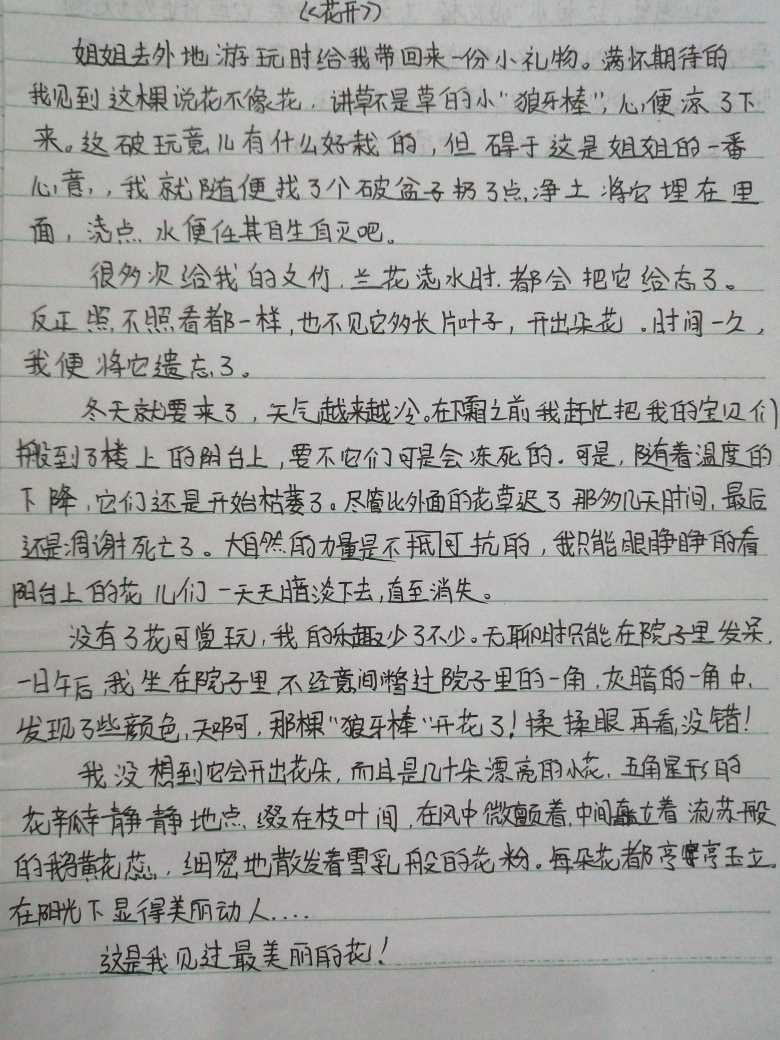 《花开》
姐姐去外地游玩时给我带回来一份小礼物。满怀期待的
我见到这棵说花不像花,讲草不是草的小“狼牙棒”,心便凉了下
来。这破玩意儿有什么好栽的,但碍于这是姐姐的一番
心意,,我就随便找了个破盆子扔了点净土将它埋在里
面,浇点水便任其自生自灭吧。
很多次给我的文竹、兰花浇水时,都会把它给忘了。
反正照不照看都一样,也不见它多长片叶子,开出朵花。时间一久,
我便将它遗忘了。
冬天就要来了,天气越来越冷。在下霜之前我赶忙把我的宝贝们
搬到了楼上的阳台上,要不它们可是会冻死的。可是,随着温度的
下降,它们还是开始枯萎了。尽管比外面的花草迟了那多几天时间,最后
还是凋谢死亡了。大自然的力量是不抵可抗的,我只能眼睁睁的看
阳台上的花儿们一天天暗淡下去,直至消失。
没有了花可赏玩,我的乐趣少了不少。无聊时只能在院子里发呆,
一日午后,我坐在院子里,不经意间瞥过院子里的一角,灰暗的一角中,
发现了些颜色,天啊,那棵“狼牙棒”开花了!揉揉眼再看,没错!
我没想到它会开出花朵,而且是几十朵漂亮的小花,五角星形的
花瓣静静地点缀在枝叶间,在风中微颤着,中间矗立着流苏般
的鹅黄花蕊,细密地散发着雪乳般的花粉。每朵花都亭亭玉立。
在阳光下显得美丽动人....
这是我见过最美丽的花!